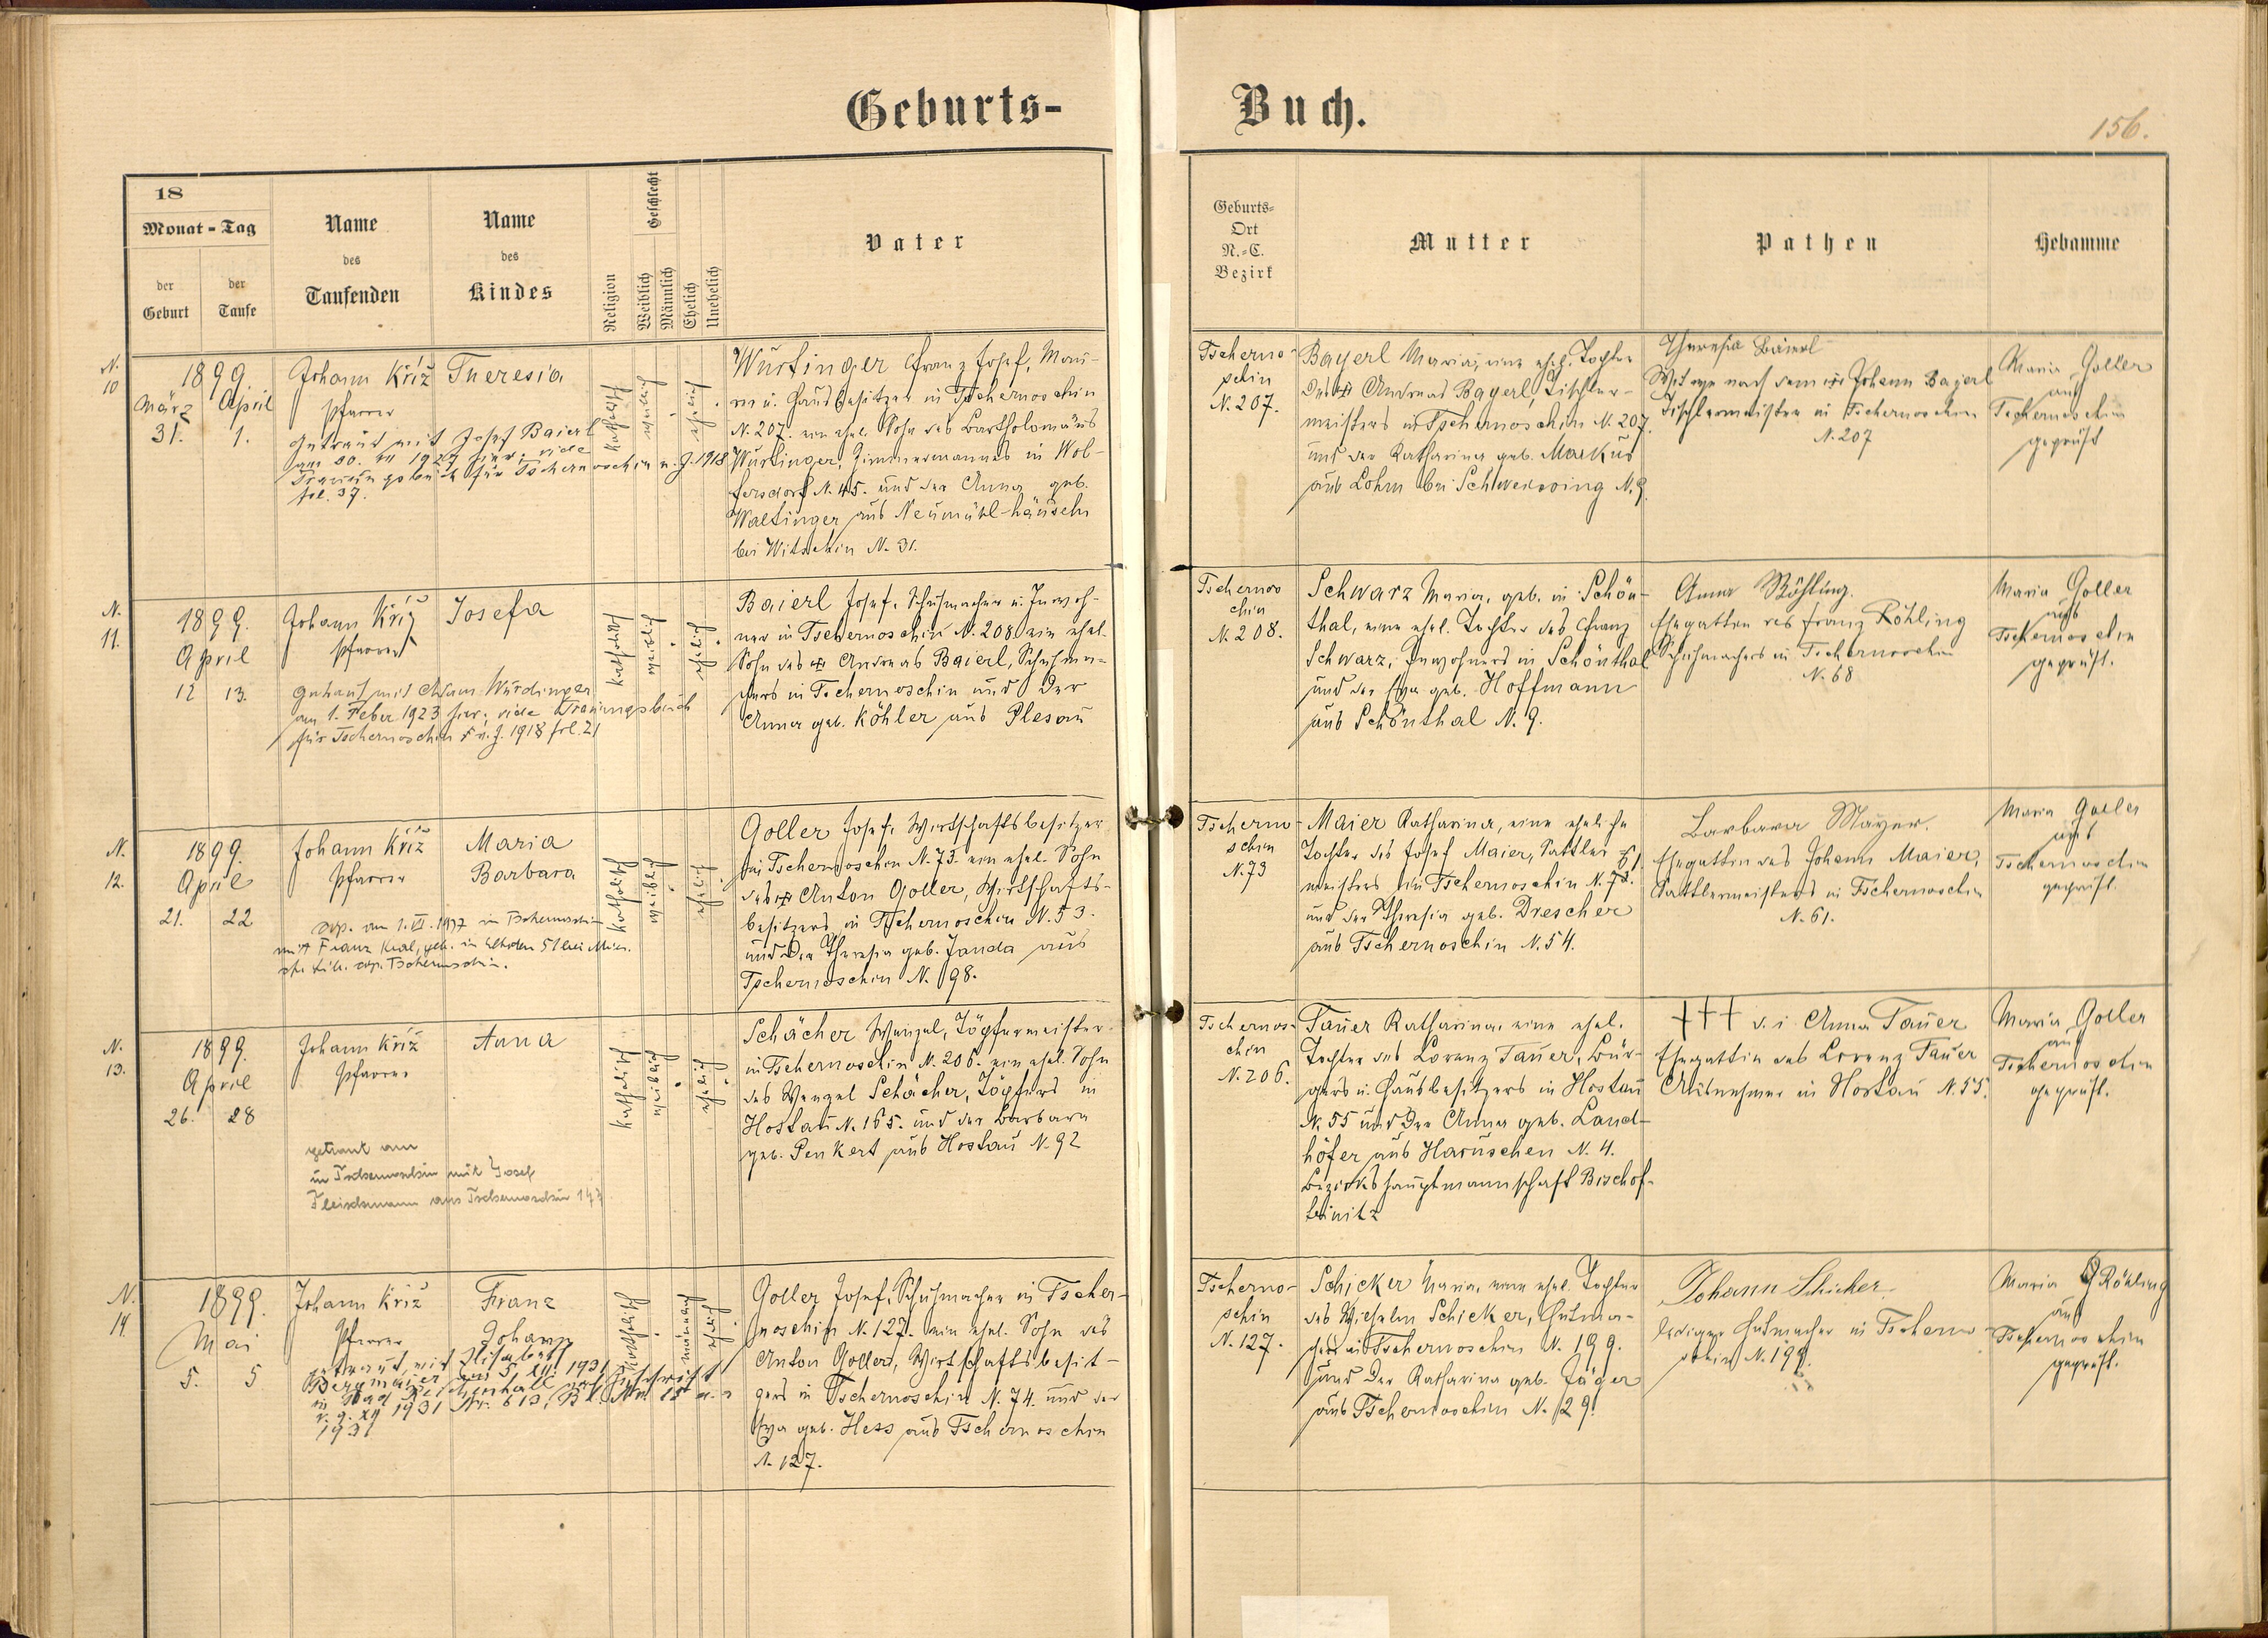 Geburts-
Buch.
156.
18
Monat - Tag
der Geburt
der Taufe
Name des Taufenden
Name des Kindes
Religion
Geschlecht
Weiblich
Männlich
Ehelich
Unehelich
Vater
Geburts-Ort N.-C. Bezirk
Mutter
Pathen
Hebamme
N. 10
1899.
März April
31. 1.
Johann Kříž
Pfarrer
Theresia
katholisch
weiblich
ehelich
getraut mit Josef Baierl
am 30. VII 1927 hier; vide
Trauungsbuch für Tschernoschin v. J. 1918
fol. 37.
Würtinger Franz Josef, Mau-
rer u. Hausbesitzer in Tschernoschin
N. 207. ein ehel. Sohn des Bartholomäus
Würtinger, Zimmermannes in Wol-
fersdorf N. 45. und der Anna geb.
Waltinger aus Neumühl-häuseln
bei Witschin N. 31.
Tscherno-
schin
N. 207.
Bayerl Maria, eine ehel. Tochter
des + Andreas Bayerl, Tischler-
meisters in Tschernoschin N. 207.
und der Katharina geb. Markus
aus Lohm bei Schweissing N. 9.
Theresia Baierl
nach dem Johann Bayerl
Tischlermeister in Tschernoschin
N. 207
Maria Goller
aus
Tschernoschin
geprüft
N. 11.
1899.
April
12 13.
Johann Kříž
Pfarrer
Josefa
katholisch
weiblich
ehelich
getraut mit Adam Würdinger
am 1. Feber 1923 hier; vide Trauungsbuch
für Tschernoschin v. J. 1918 fol. 21
Baierl Josef, Schuhmacher u. Inwoh-
ner in Tschernoschin N. 208 ein ehel.
Sohn des + Andreas Baierl, Schuhma-
chers in Tschernoschin und der
Anna geb. Köhler aus Plesau
Tschernos
chin
N. 208.
Schwarz Maria, geb. in Schön-
thal, eine ehel. Tochter des Franz
Schwarz, Inwohners in Schönthal
und der Eva geb. Hoffmann
aus Schönthal N. 9.
Anna Röhling.
Ehegattin des Franz Röhling
Schuhmachers in Tschernoschin
N. 68
Maria Goller
aus
Tschernoschin
geprüft.
N. 12.
1899.
April
21. 22
Johann Kříž
Pfarrer
Maria
Barbara
katholisch
weiblich
ehelich
cop. am 1. VI. 1937 in Tschernoschin
mit Franz Kral, geb. in 51 bei Mies.
cop. Tschernoschin.
Goller Josef, Wirtschaftsbesitzer
in Tschernoschin N. 73. ein ehel. Sohn
des + Anton Goller, Wirtschafts-
besitzers in Tschernoschin N. 53.
und der Theresia geb. Janda aus
Tschernoschin N. 98.
Tscherno-
schin
N. 73
Maier Katharina, eine eheliche
Tochter des Josef Maier, Sattler-
meisters in Tschernoschin N. 61.
und der Theresia geb. Drescher
aus Tschernoschin N. 54.
Barbara Mayer.
Ehegattin des Johann Maier,
Sattlermeisters in Tschernoschin
N. 61.
Maria Goller
aus
Tschernoschin
geprüft.
N. 13.
1899.
April
26. 28
Johann Kříž
Pfarrer
Anna
katholisch
weiblich
ehelich
getraut am
in Tschernoschin mit Josef
Fleischmann aus Tschernoschin 143
Schächer Wenzel, Töpfermeister
in Tschernoschin N. 206. ein ehel. Sohn
des Wenzel Schächer, Töpfers in
Hostau N. 165. und der Barbara
geb. Penkert aus Hostau N. 92
Tschernos-
chin
N. 206.
Tauer Katharina, eine ehel.
Tochter des Lorenz Tauer, Bür-
gers u. Hausbesitzers in Hostau
N. 55 und der Anna geb. Land-
höfer aus Haruschen N. 4.
Bezirkshauptmannschaft Bischof-
teinitz
+++ d. i. Anna Tauer
Ehegattin des Lorenz Tauer
Ausnehmer in Hostau N. 55.
Maria Goller
aus
Tschernoschin
geprüft.
N. 14.
1899.
Mai
5. 5
Johann Kříž
Pfarrer
Franz
Johann
katholisch
männlich
ehelich
getraut mit Elisabeth
Bergmaier am 5. III 1931
in Bad Reichenhall
1931 Nr. 613
1931
Goller Josef, Schuhmacher in Tscher-
noschin N. 127. ein ehel. Sohn des
Anton Goller, Wirtschaftsbesit-
zers in Tschernoschin N. 74. und der
Eva geb. Hess aus Tschernoschin
N. 127.
Tscherno-
schin
N. 127.
Schicker Maria, eine ehel. Tochter
des Wilhelm Schicker, Hutma-
chers in Tschernoschin N. 199.
und der Katharina geb. Jäger
aus Tschernoschin N. 129.
Johann Schicker.
lediger Hutmacher in Tscherno-
schin N. 199.
Maria Röhling
aus
Tschernoschin
geprüft.